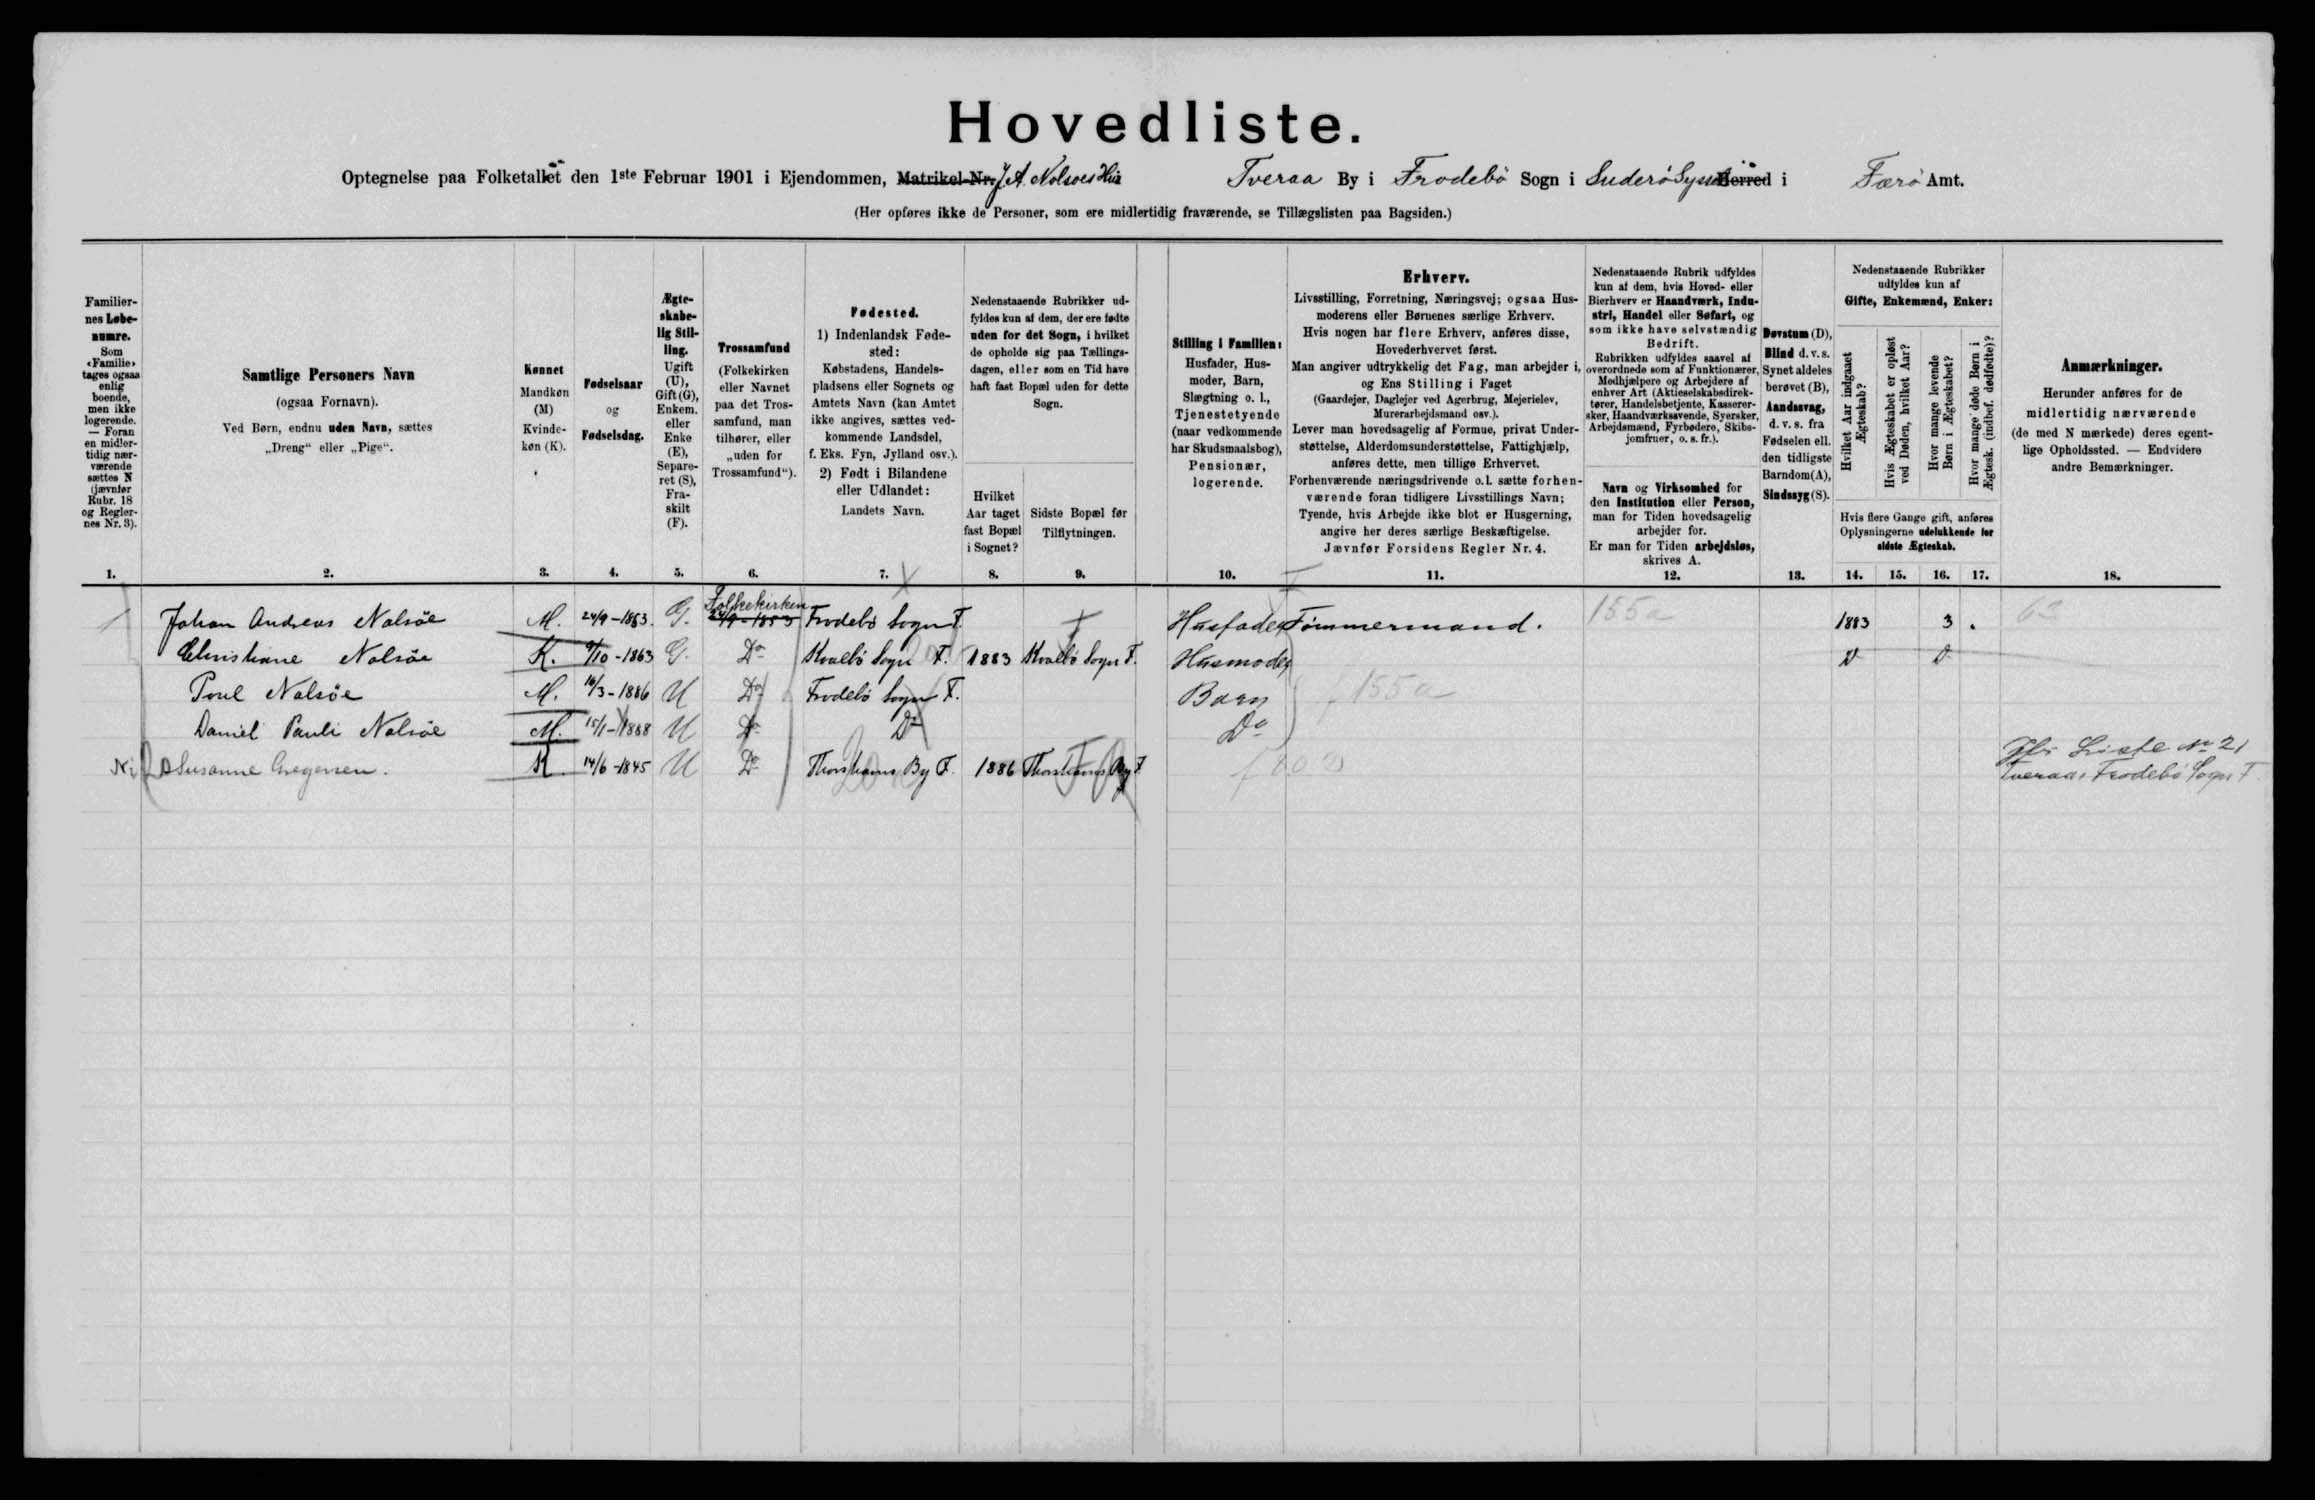 Hovedliste.
Optegnelse paa Folketallet den 1ste Februar 1901 i Ejendommen, Matrikel-Nr. J. A. Nolsöes Hus Tveraa By i Frodebö Sogn i Suderö Syssel Herred i Færö Amt.
(Her opføres ikke de Personer, som ere midlertidig fraværende, se Tillægslisten paa Bagsiden.)
Familiernes Løbenumre.
Som «Familie» tages ogsaa enlig boende, men ikke logerende. — Foran en midlertidig nærværende sættes N (jævnfør Rubr. 18 og Reglernes Nr. 3).
Samtlige Personers Navn
(ogsaa Fornavn).
Ved Børn, endnu uden Navn, sættes
„Dreng“ eller „Pige“.
Kønnet
Mandkøn (M)
Kvindekøn (K).
Fødselsaar
og
Fødselsdag.
Ægteskabelig Stilling.
Ugift (U), Gift (G), Enkem. eller Enke (E), Separeret (S), Fraskilt (F).
Trossamfund
(Folkekirken eller Navnet paa det Trossamfund, man tilhører, eller „uden for Trossamfund“).
Fødested.
1) Indenlandsk Fødested:
Købstadens, Handelspladsens eller Sognets og Amtets Navn (kan Amtet ikke angives, sættes vedkommende Landsdel, f. Eks. Fyn, Jylland osv.).
2) Født i Bilandene eller Udlandet:
Landets Navn.
Nedenstaaende Rubrikker udfyldes kun af dem, der ere fødte uden for det Sogn, i hvilket de opholde sig paa Tællingsdagen, eller som en Tid have haft fast Bopæl uden for dette Sogn.
Hvilket Aar taget fast Bopæl i Sognet?
Sidste Bopæl før Tilflytningen.
Stilling i Familien:
Husfader, Husmoder, Barn, Slægtning o. l., Tjenestetyende (naar vedkommende har Skudsmaalsbog), Pensionær, logerende.
Erhverv.
Livsstilling, Forretning, Næringsvej; ogsaa Husmoderens eller Børnenes særlige Erhverv.
Hvis nogen har flere Erhverv, anføres disse, Hovederhvervet først.
Man angiver udtrykkelig det Fag, man arbejder i, og Ens Stilling i Faget
(Gaardejer, Daglejer ved Agerbrug, Mejerielev, Murerarbejdsmand osv.).
Lever man hovedsagelig af Formue, privat Understøttelse, Alderdomsunderstøttelse, Fattighjælp, anføres dette, men tillige Erhvervet.
Forhenværende næringsdrivende o. l. sætte forhenværende foran tidligere Livsstillings Navn;
Tyende, hvis Arbejde ikke blot er Husgerning, angive her deres særlige Beskæftigelse.
Jævnfør Forsidens Regler Nr. 4.
Nedenstaaende Rubrik udfyldes kun af dem, hvis Hoved- eller Bierhverv er Haandværk, Industri, Handel eller Søfart, og som ikke have selvstændig Bedrift.
Rubrikken udfyldes saavel af overordnede som af Funktionærer, Medhjælpere og Arbejdere af enhver Art (Aktieselskabsdirektører, Handelsbetjente, Kasserersker, Haandværkssvende, Syersker, Arbejdsmænd, Fyrbødere, Skibsjomfruer, o. s. fr.).
Navn og Virksomhed for den Institution eller Person, man for Tiden hovedsagelig arbejder for.
Er man for Tiden arbejdsløs, skrives A.
Døvstum (D), Blind d. v. s. Synet aldeles berøvet (B), Aandssvag, d. v. s. fra Fødselen ell. den tidligste Barndom (A), Sindssyg (S).
Nedenstaaende Rubrikker udfyldes kun af
Gifte, Enkemænd, Enker:
Hvilket Aar indgaaet Ægteskab?
Hvis Ægteskabet er opløst ved Døden, hvilket Aar?
Hvor mange levende Børn i Ægteskabet?
Hvor mange døde Børn i Ægtesk. (indbef. dødfødte)?
Hvis flere Gange gift, anføres Oplysningerne udelukkende for sidste Ægteskab.
Anmærkninger.
Herunder anføres for de midlertidig nærværende (de med N mærkede) deres egentlige Opholdssted. — Endvidere andre Bemærkninger.
1. 2. 3. 4. 5. 6. 7. 8. 9. 10. 11. 12. 13. 14. 15. 16. 17. 18.
Johan Andreas Nolsöe M. 24/9-1853. G. Folkekirken 24/9-1853 Frodebö Sogn F. Husfader Tömmermand. 155a 1883 3 . 62
Christiane Nolsöe K. 9/10-1863 G. Do Kvalbö Sogn F. 1883 Kvalbö Sogn F. Husmoder
Poul Nolsöe M. 16/3-1886 U Do Frodebö Sogn F. Barn f 155a
Daniel Pauli Nolsöe M. 15/1-1888 U Do Do Do
Susanne Gregersen. K 14/6-1845 U Do Thorshavns By F. 1886 Thorshavns By F Liste No 21
Tveraa, Frodebö Sogn F.